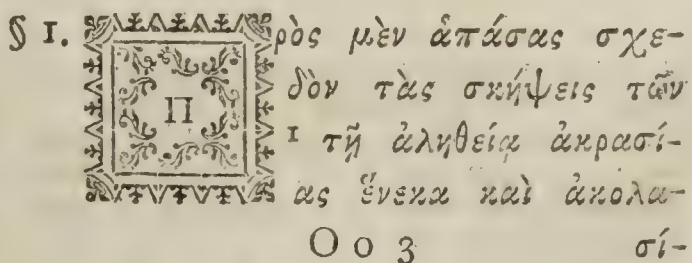 § 1. Πρὸς μὲν ἁπάσας σχε-
δὸν τὰς σκήψεις τῶν
¹ τῇ ἀληθείᾳ ἀκρασί-
ας ἕνεκα καὶ ἀκολα-
O o 3 σί-